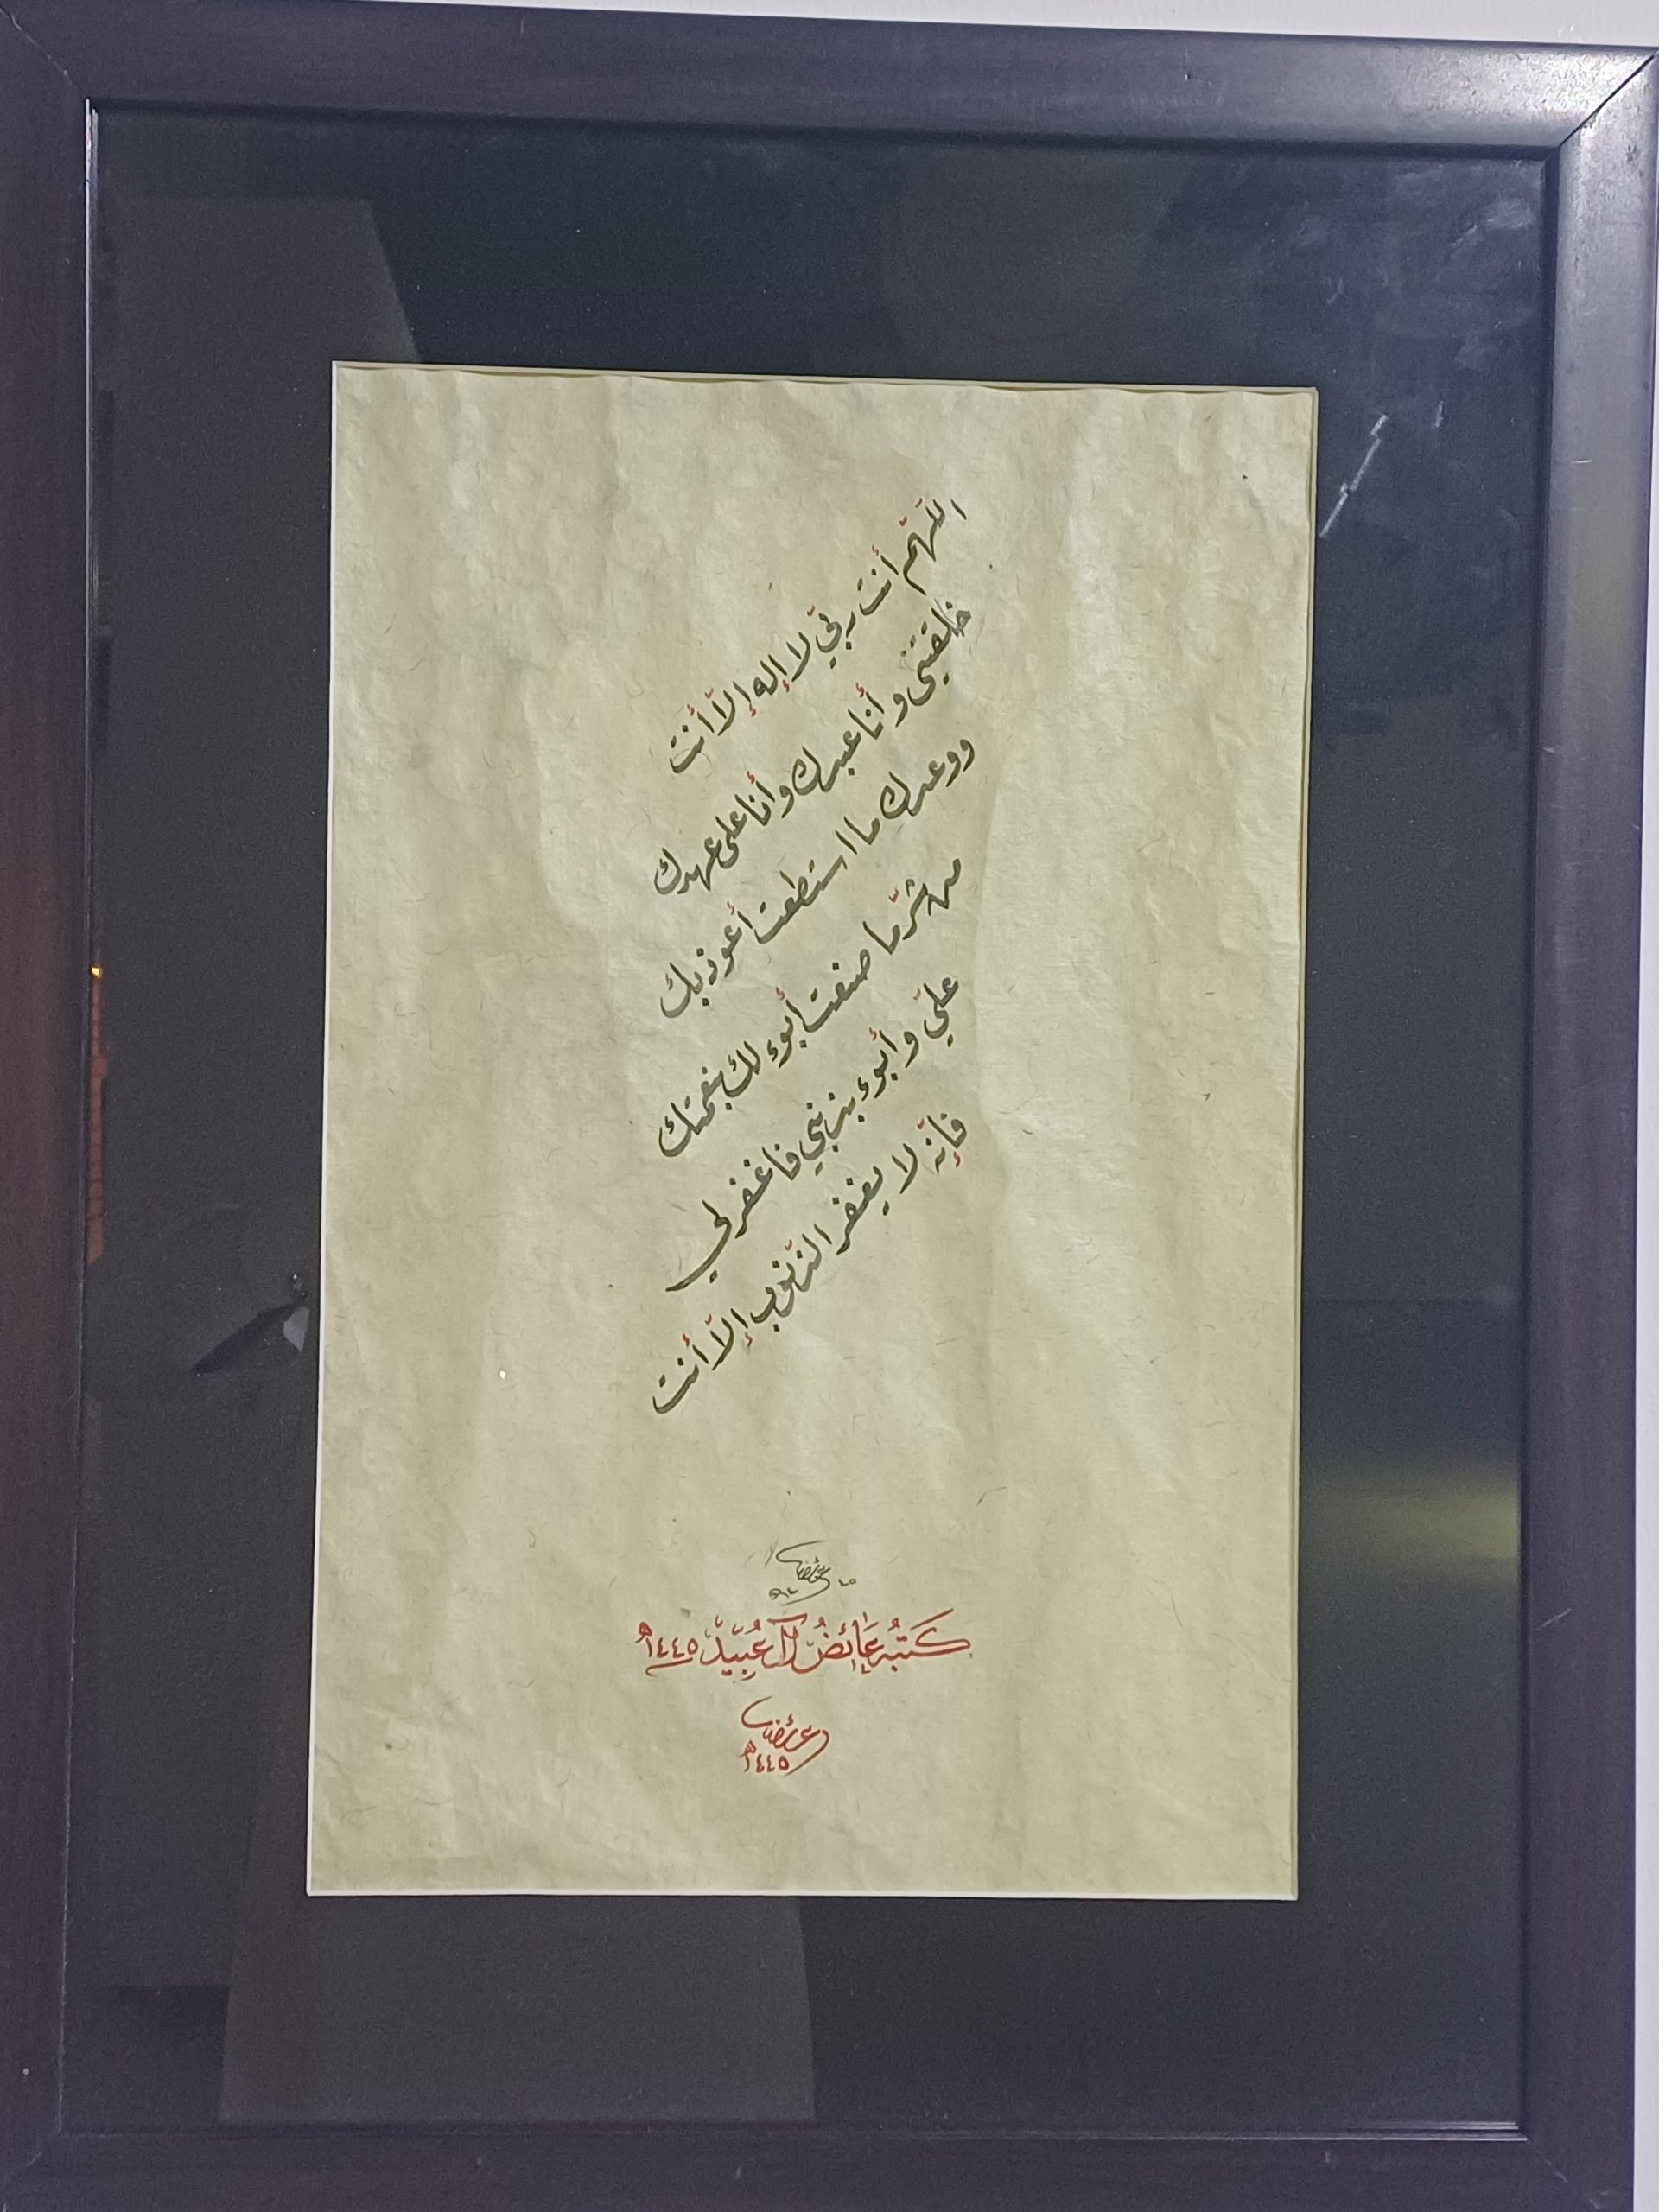 اللّهمّ أنت ربّي لا إله إلّا أنت
خلقتني وأنا عبدك وأنا على عهدك
ووعدك ما استطعت أعوذ بك
من شرّ ما صنعت أبوء لك بنعمتك
عليّ وأبوء بذنبي فاغفر لي
فإنّه لا يغفر الذّنوب إلّا أنت
كَتَبَهُ عَائضُ آل عُبيّد ١٤٤٥هـ
عائض
١٤٤٥هـ